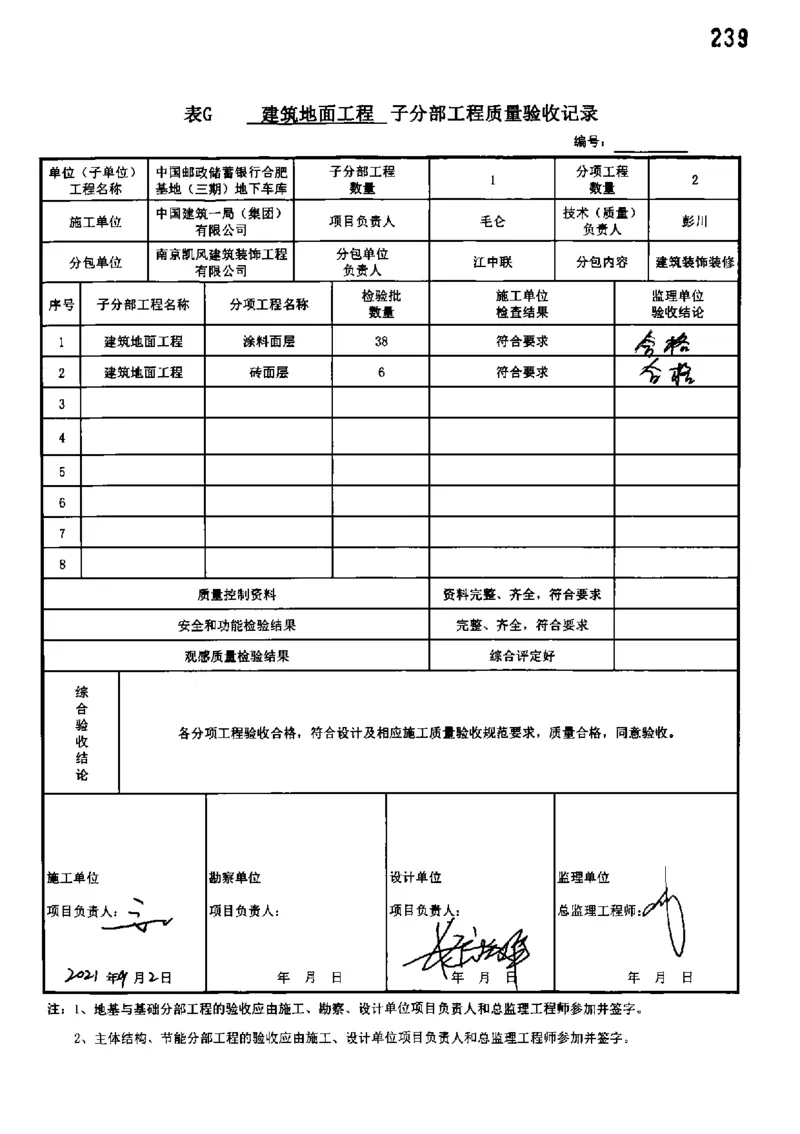 239
表G 建筑地面工程 子分部工程质量验收记录
编号：
单位（子单位）工程名称 中国邮政储蓄银行合肥基地（三期）地下车库 子分部工程数量 1 分项工程数量 2
施工单位 中国建筑一局（集团）有限公司 项目负责人 毛仑 技术（质量）负责人 彭川
分包单位 南京凯风建筑装饰工程有限公司 分包单位负责人 江中联 分包内容 建筑装饰装修
序号 子分部工程名称 分项工程名称 检验批数量 施工单位检查结果 监理单位验收结论
1 建筑地面工程 涂料面层 38 符合要求 合格
2 建筑地面工程 砖面层 6 符合要求 合格
3
4
5
6
7
8
质量控制资料 资料完整、齐全，符合要求
安全和功能检验结果 完整、齐全，符合要求
观感质量检验结果 综合评定好
综合验收结论 各分项工程验收合格，符合设计及相应施工质量验收规范要求，质量合格，同意验收。
施工单位 勘察单位 设计单位 监理单位
项目负责人： 项目负责人： 项目负责人： 总监理工程师：
2021年9月2日 年 月 日 年 月 日 年 月 日
注：1、地基与基础分部工程的验收应由施工、勘察、设计单位项目负责人和总监理工程师参加并签字。
2、主体结构、节能分部工程的验收应由施工、设计单位项目负责人和总监理工程师参加并签字。